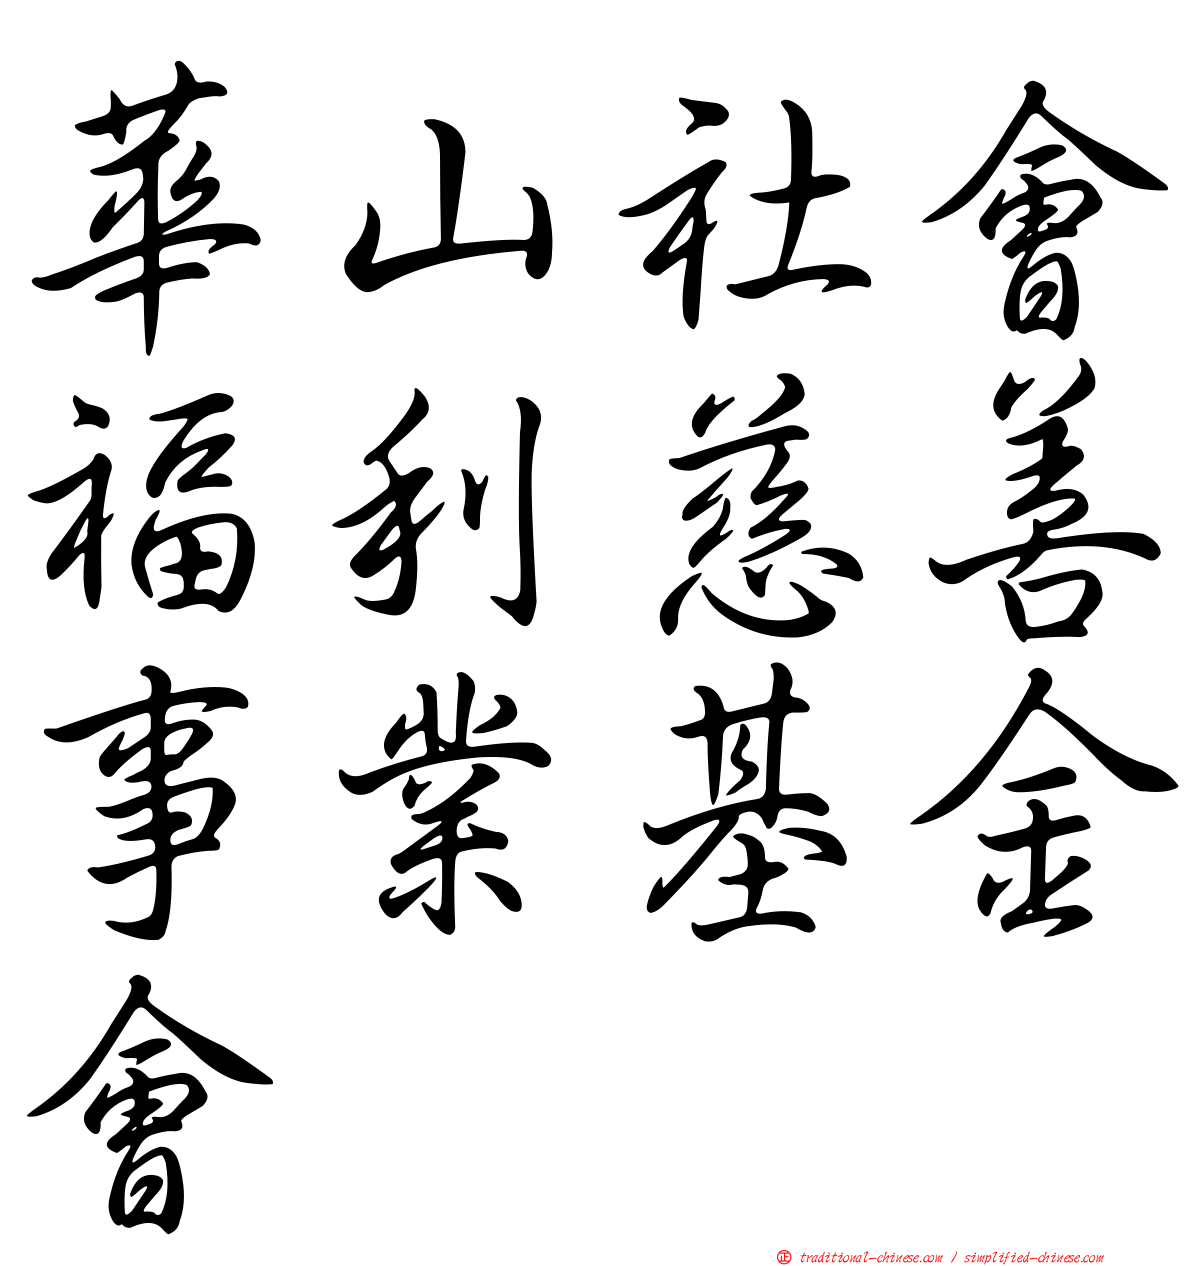 華山社會
福利慈善
事業基金
會
正 traditional-chinese.com / simplified-chinese.com